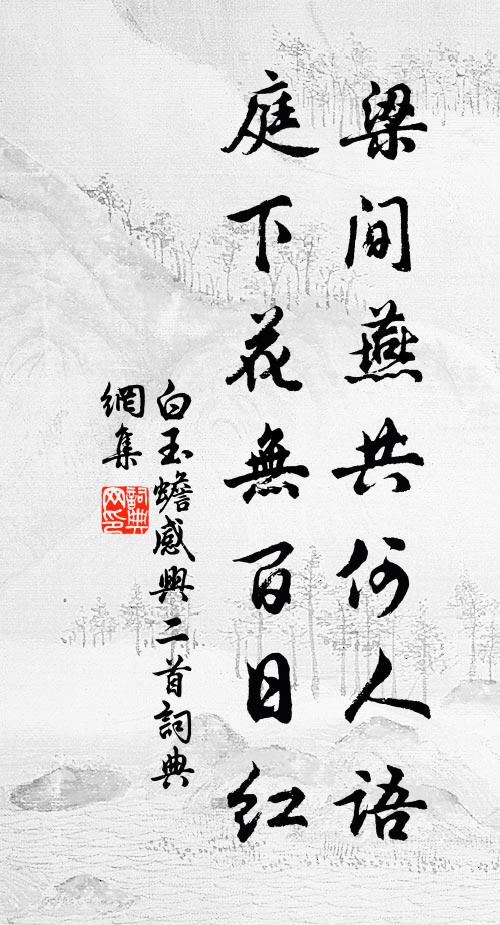 梁间燕共何人语
庭下花無百日红
白玉蟾感興二首詞典
網集
詞典
网印